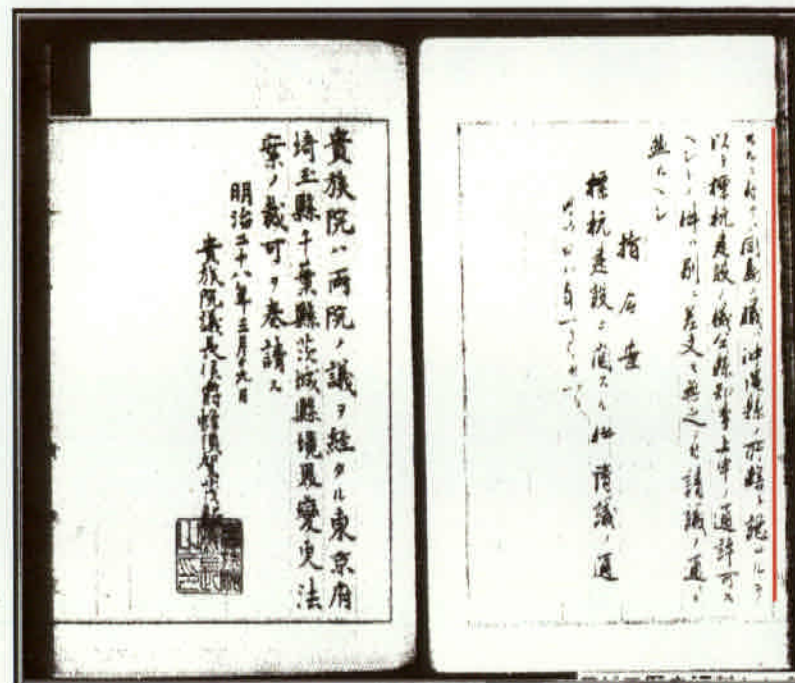 以テ標杭建設ノ儀仝縣知事上申ノ通許可ス
ヘシトノ件ハ別ニ差支モ無之ニ付請議ノ通ニ
然ルヘシ
指令案
標杭建設ニ関スル件請議ノ通
貴族院ハ両院ノ議ヲ経タル東京府
埼玉縣千葉縣茨城縣境界變更法
案ノ裁可ヲ奏請ス
明治二十八年三月十九日
貴族院議長侯爵蜂須賀茂韶